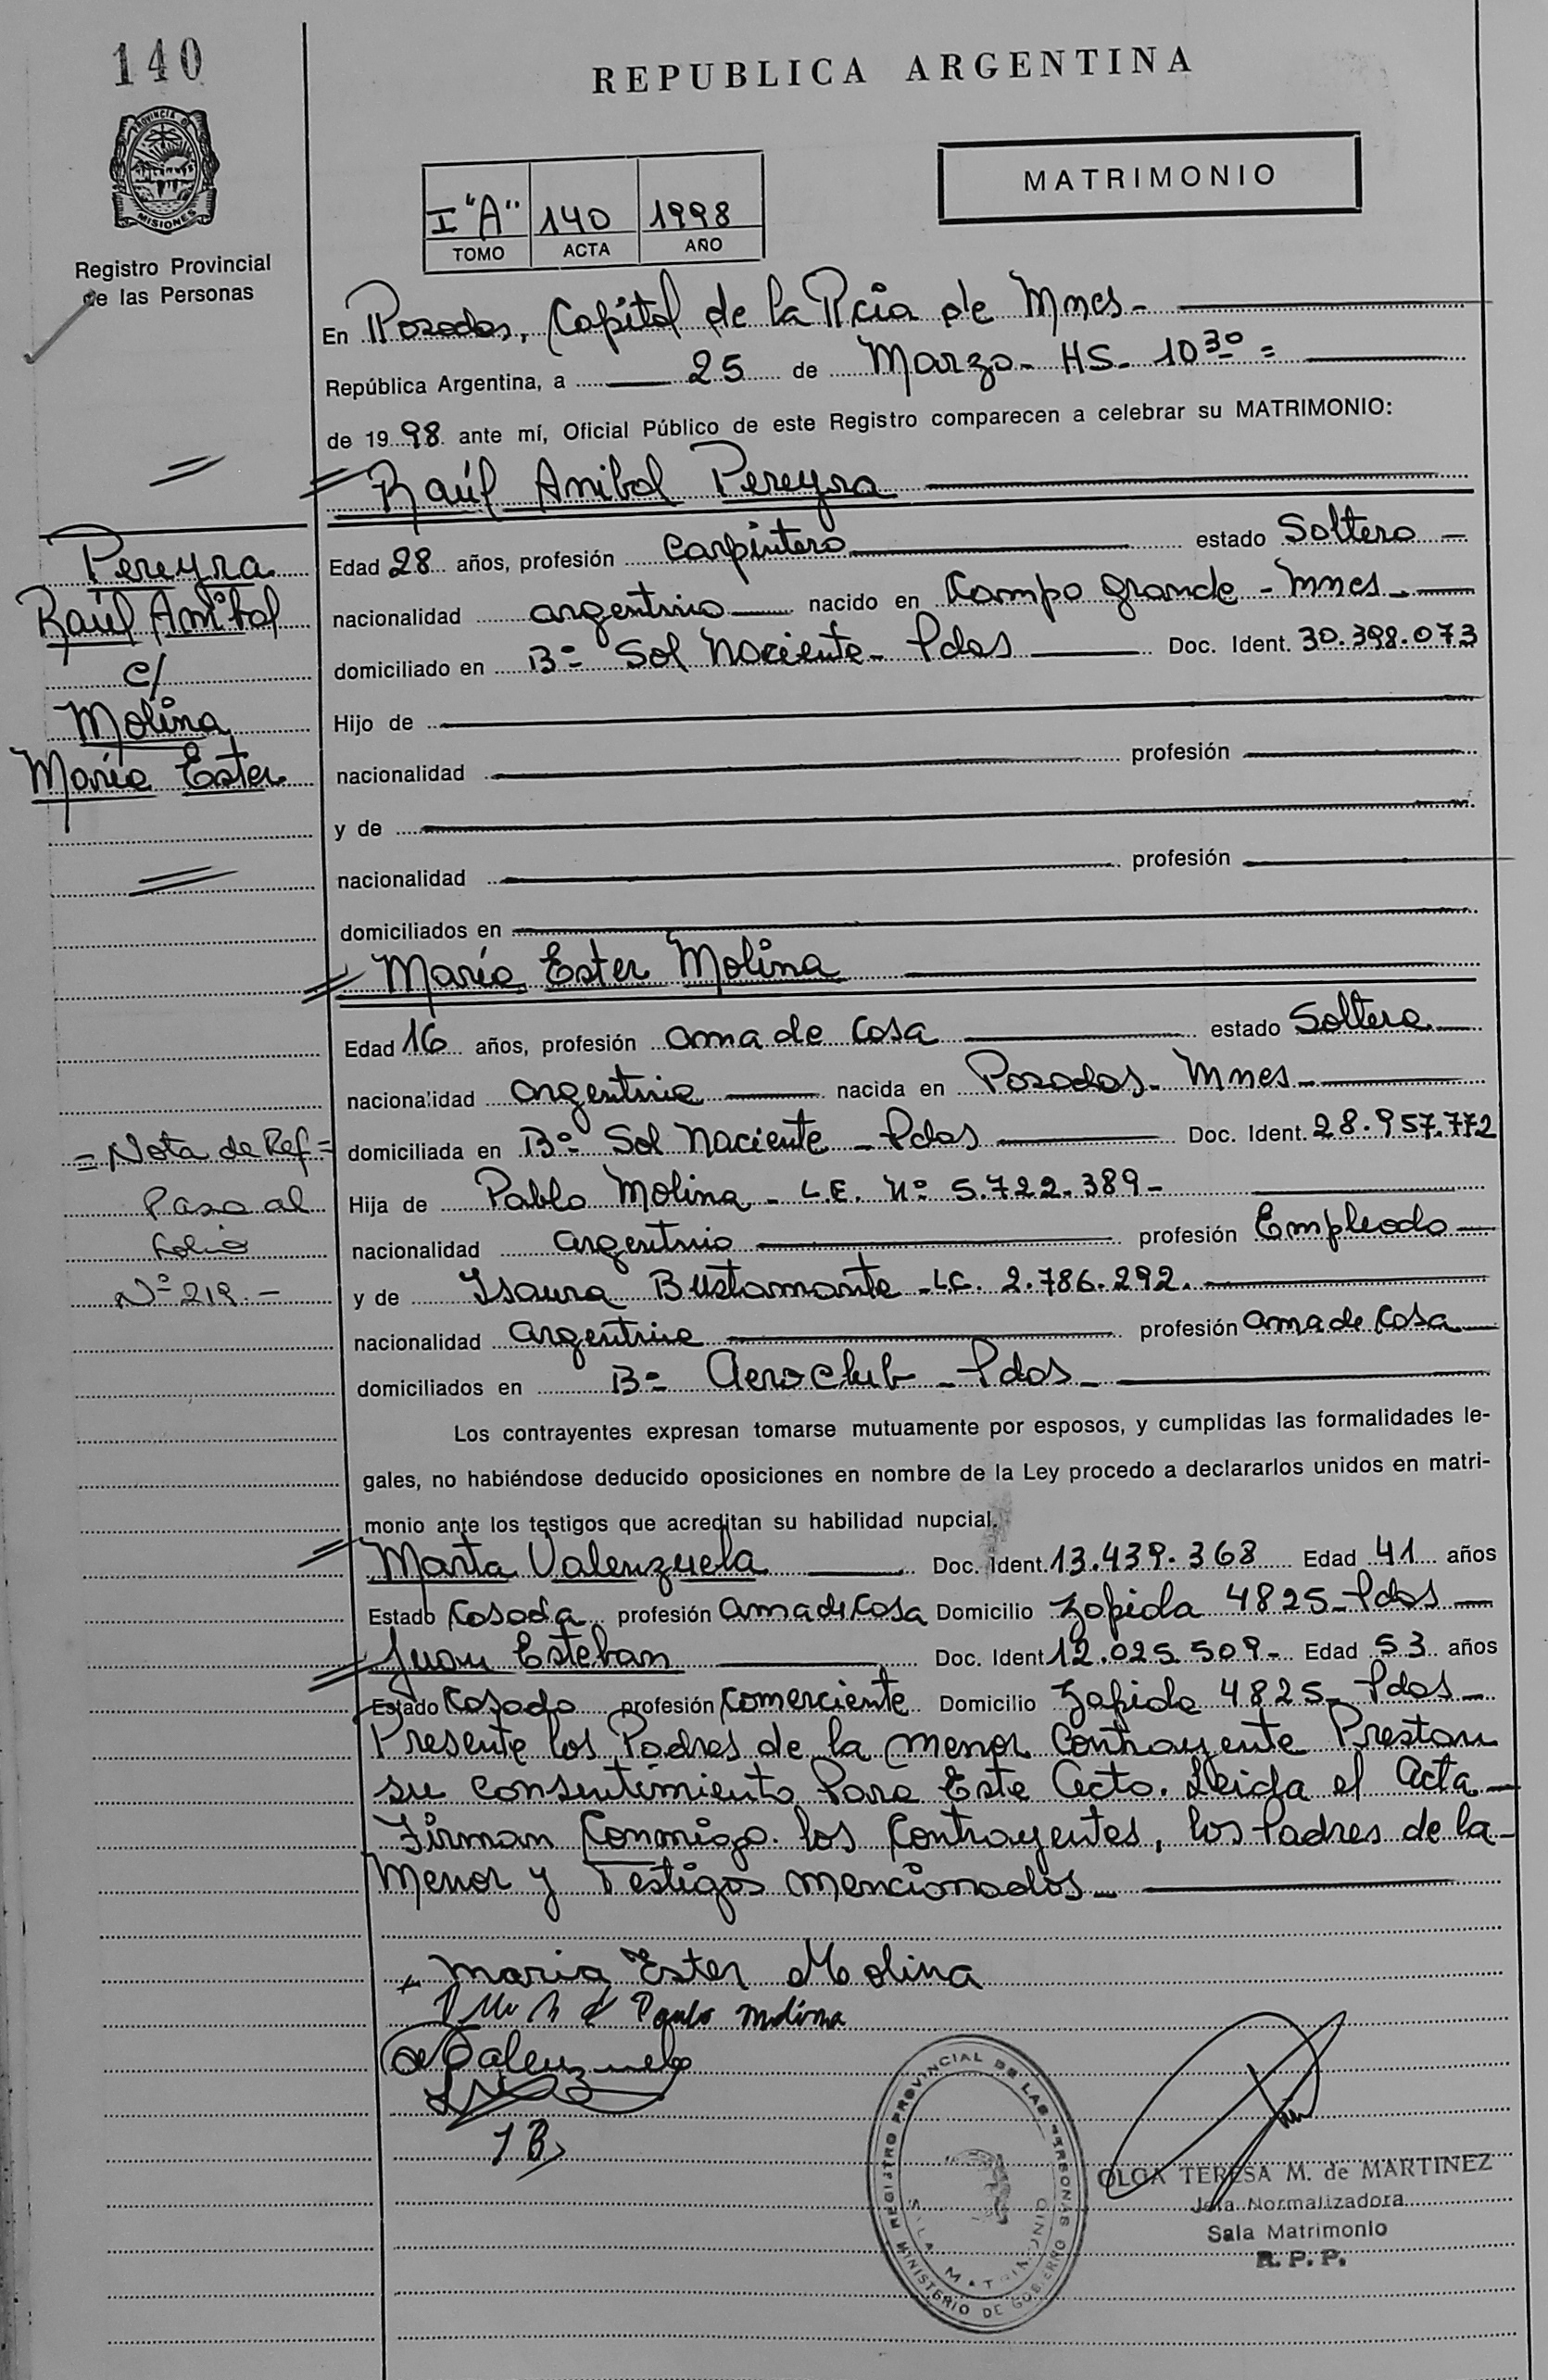 140
REPUBLICA ARGENTINA
PROVINCIA DE
MISIONES
MATRIMONIO
I "A" 140 1998
TOMO ACTA AÑO
Registro Provincial
de las Personas
En Posadas, Capital de la Pcia de Mnes-
República Argentina, a 25 de Marzo- HS- 10 30 =
de 1998 ante mí, Oficial Público de este Registro comparecen a celebrar su MATRIMONIO:
Raúl Anibal Pereyra
Pereyra
Raúl Anibal
c/
Molina
María Ester
Edad 28 años, profesión Carpintero estado Soltero -
nacionalidad argentino nacido en Campo Grande - Mnes-
domiciliado en B° Sol Naciente - Pdas Doc. Ident. 30.398.073
Hijo de
nacionalidad profesión
y de
nacionalidad profesión
domiciliados en
María Ester Molina
Edad 16 años, profesión ama de Casa estado Soltera
nacionalidad argentina nacida en Posadas- Mnes-
domiciliada en B° Sol Naciente - Pdas Doc. Ident. 28.957.772
= Nota de Ref =
Pasa al
folio
N° 219.-
Hija de Pablo Molina - L.E. N° 5.722.389-
nacionalidad argentino profesión Empleado
y de Isaura Bustamante - L.C. 2.786.292.
nacionalidad argentina profesión ama de Casa
domiciliados en B° Aeroclub - Pdas-
Los contrayentes expresan tomarse mutuamente por esposos, y cumplidas las formalidades le-
gales, no habiéndose deducido oposiciones en nombre de la Ley procedo a declararlos unidos en matri-
monio ante los testigos que acreditan su habilidad nupcial.
Marta Valenzuela Doc. Ident. 13.439.368 Edad 41 años
Estado Casada profesión ama de Casa Domicilio Zapiola 4825-Pdas
Juan Esteban Doc. Ident 12.025.509- Edad 53 años
Estado Casado profesión Comerciente Domicilio Zapiola 4825- Pdas-
Presente los Padres de la menor Contrayente Prestan
su consentimiento Para Este Acto. Leida el Acta
Firman Conmigo. los Contrayentes, los Padres de la
Menor y Testigos mencionados-
Maria Ester Molina
Pablo Molina
Valenzuela
IB
REGISTRO PROVINCIAL DE LAS PERSONAS
SALA MATRIMONIO
MINISTERIO DE GOBIERNO
OLGA TERESA M. de MARTINEZ
Jefa Normalizadora
Sala Matrimonio
R. P. P.